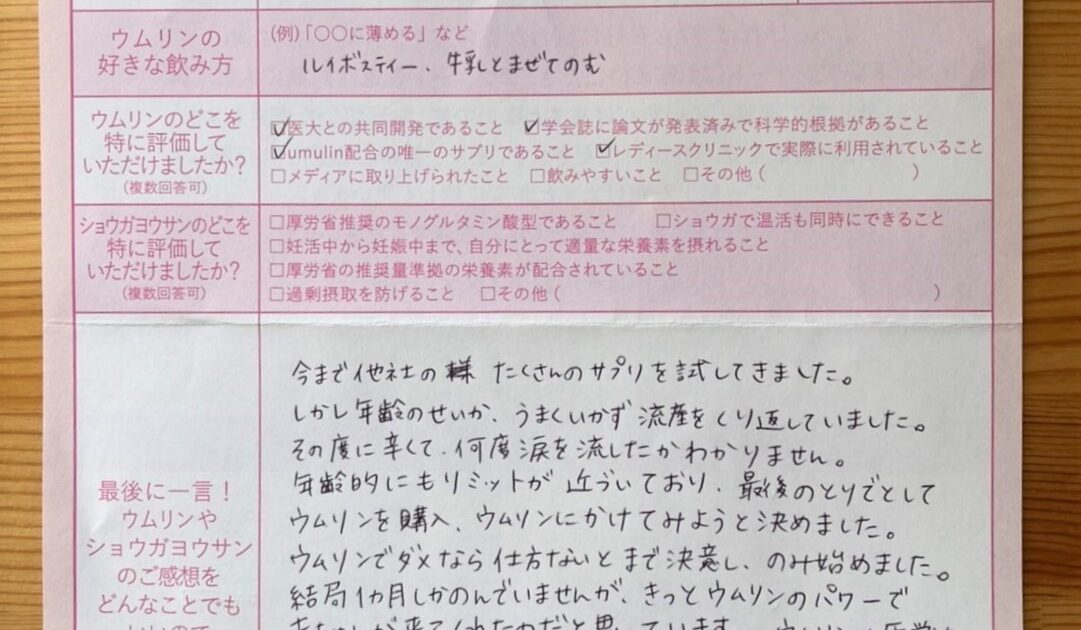 ウムリンの
好きな飲み方
(例)「〇〇に薄める」など
ルイボスティー、牛乳とまぜてのむ
ウムリンのどこを
特に評価して
いただけましたか?
(複数回答可)
☑医大との共同開発であること ☑学会誌に論文が発表済みで科学的根拠があること
☑umulin配合の唯一のサプリであること ☑レディースクリニックで実際に利用されていること
□メディアに取り上げられたこと □飲みやすいこと □その他( )
ショウガヨウサンのどこを
特に評価して
いただけましたか?
(複数回答可)
□厚労省推奨のモノグルタミン酸型であること □ショウガで温活も同時にできること
□妊活中から妊娠中まで、自分にとって適量な栄養素を摂れること
□厚労省の推奨量準拠の栄養素が配合されていること
□過剰摂取を防げること □その他( )
最後に一言!
ウムリンや
ショウガヨウサン
のご感想を
どんなことでも
今まで他社の たくさんのサプリを試してきました。
しかし年齢のせいか、うまくいかず流産をくり返していました。
その度に辛くて、何度涙を流したかわかりません。
年齢的にもリミットが近づいており、最後のとりでとして
ウムリンを購入、ウムリンにかけてみようと決めました。
ウムリンでダメなら仕方ないとまで決意し、のみ始めました。
結局1カ月しかのんでいませんが、きっとウムリンのパワーで